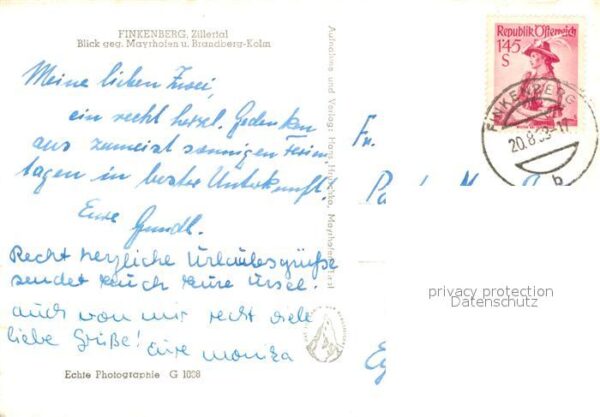 FINKENBERG, Zillertal
Blick geg. Mayrhofen u. Brandberg-Kolm
Meine lieben Zwei,
ein recht herzl. Gedenken
aus zumeist sonnigen Ferien
tagen in bester Unterkunft!
Eure Gundl.
Recht herzliche Urlaubsgrüße
sendet Euch Eure Ursel.
auch von mir recht viele
liebe Grüße! Eure Monika
Echte Photographie G 1808
Aufnahme und Verlag: Hans Hruschka, Mayrhofen, Tirol
Republik Österreich
1'45
S
FINKENBERG
20.8.53-17
b
Fr.
privacy protection
Datenschutz